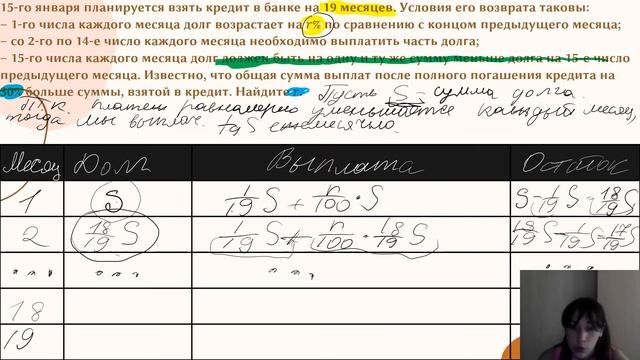 15-го января планируется взять кредит в банке на 19 месяцев. Условия его возврата таковы:
– 1-го числа каждого месяца долг возрастает на r% по сравнению с концом предыдущего месяца;
– со 2-го по 14-е число каждого месяца необходимо выплатить часть долга;
– 15-го числа каждого месяца долг должен быть на одну и ту же сумму меньше долга на 15-е число
предыдущего месяца. Известно, что общая сумма выплат после полного погашения кредита на
30% больше суммы, взятой в кредит. Найдите r. Пусть S - сумма долга.
Т.к платеж равномерно уменьшается каждый месяц,
тогда мы выплач. 1/19 S ежемесячно.
Месяц Долг Выплата Остаток
1 S 1/19 S + r/100 · S S - 1/19 S = 18/19 S
2 18/19 S 1/19 S + r/100 · 18/19 S 18/19 S - 1/19 S = 17/19 S
... ... ... ...
18
19